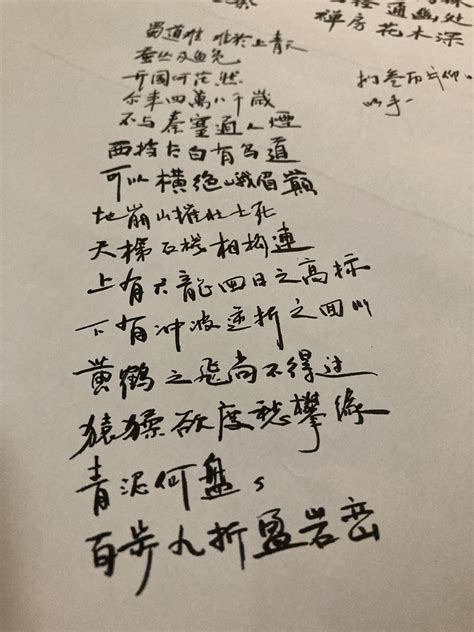 通幽处
禅房花木深
扪参历井仰
以手
蜀道难 难于上青天
蚕丛及鱼凫
开国何茫然
尔来四萬八千歳
不与秦塞通人煙
西当太白有鸟道
可以横绝峨眉巅
地崩山摧壮士死
天梯石栈相构連
上有六龍回日之高标
下有冲波逆折之回川
黄鹤之飛尚不得过
猿猱欲度愁攀缘
青泥何盘。
百步九折盈岩峦